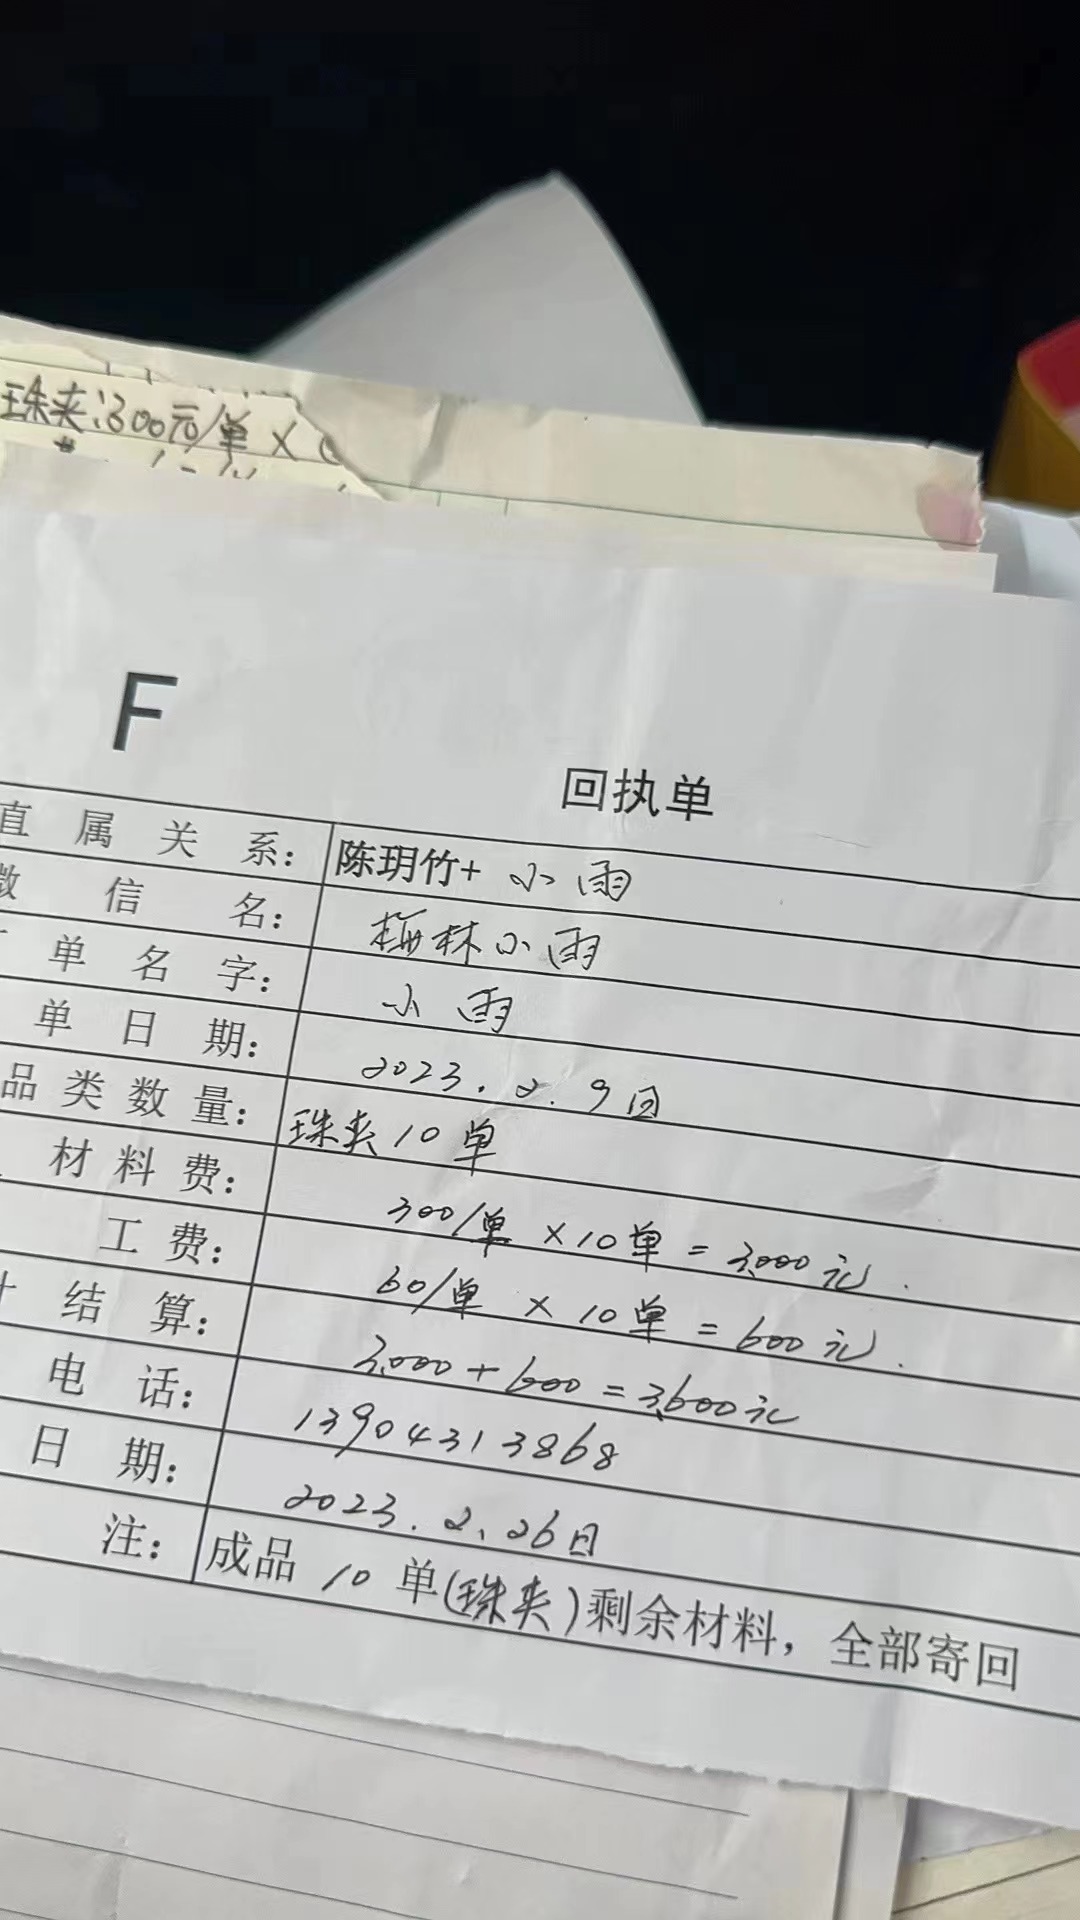 珠夹:300元/单 ×
F
回执单
直属关系: 陈玥竹+ 小雨
微信名: 梅林小雨
单名字: 小雨
单日期: 2023.2.9日
品类数量: 珠夹10单
材料费: 300/单 ×10单 = 3000元.
工费: 60/单 × 10单 = 600元.
计结算: 3000 + 600 = 3600元
电话: 13904313868
日期: 2023.2.26日
注: 成品 10 单(珠夹)剩余材料，全部寄回